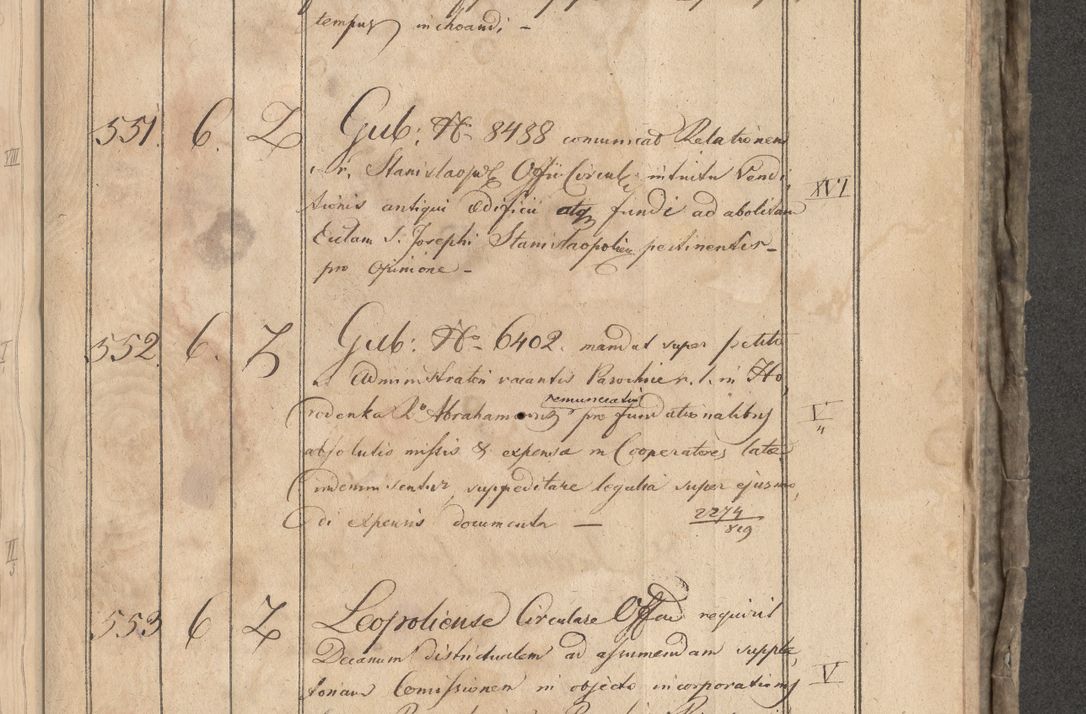 tempus inchoandi, –
551. 6. Z Gub: No 8488 comunicat Relationem
Stanislaopol Offii Circul: intuitu Vendi,
tionis antiqui ædificii atq fundi ad abolitam
Ecclam S. Josephi Stanislaopolien pertinentis –
pro Opinione –
XVI
552. 6. Z Gub: No 6402. mandat super petito
Administratori vacantis Parochiæ r. l. in Ho,
remuneratio
rodenka Abrahamowicz pro fundationalibus
V
"
absolutis missis & expensæ in Cooperatores latæ
indemnisentur, suppeditare legalia super ejusmo,
di expensis documenta —
2274
819
553 6 Z Leopoliense Circulare Offiu requirit
Decanum districtualem ad assumendam supple,
toriam Comissionem in objecto incorporationis
V
VIII
I
II
3